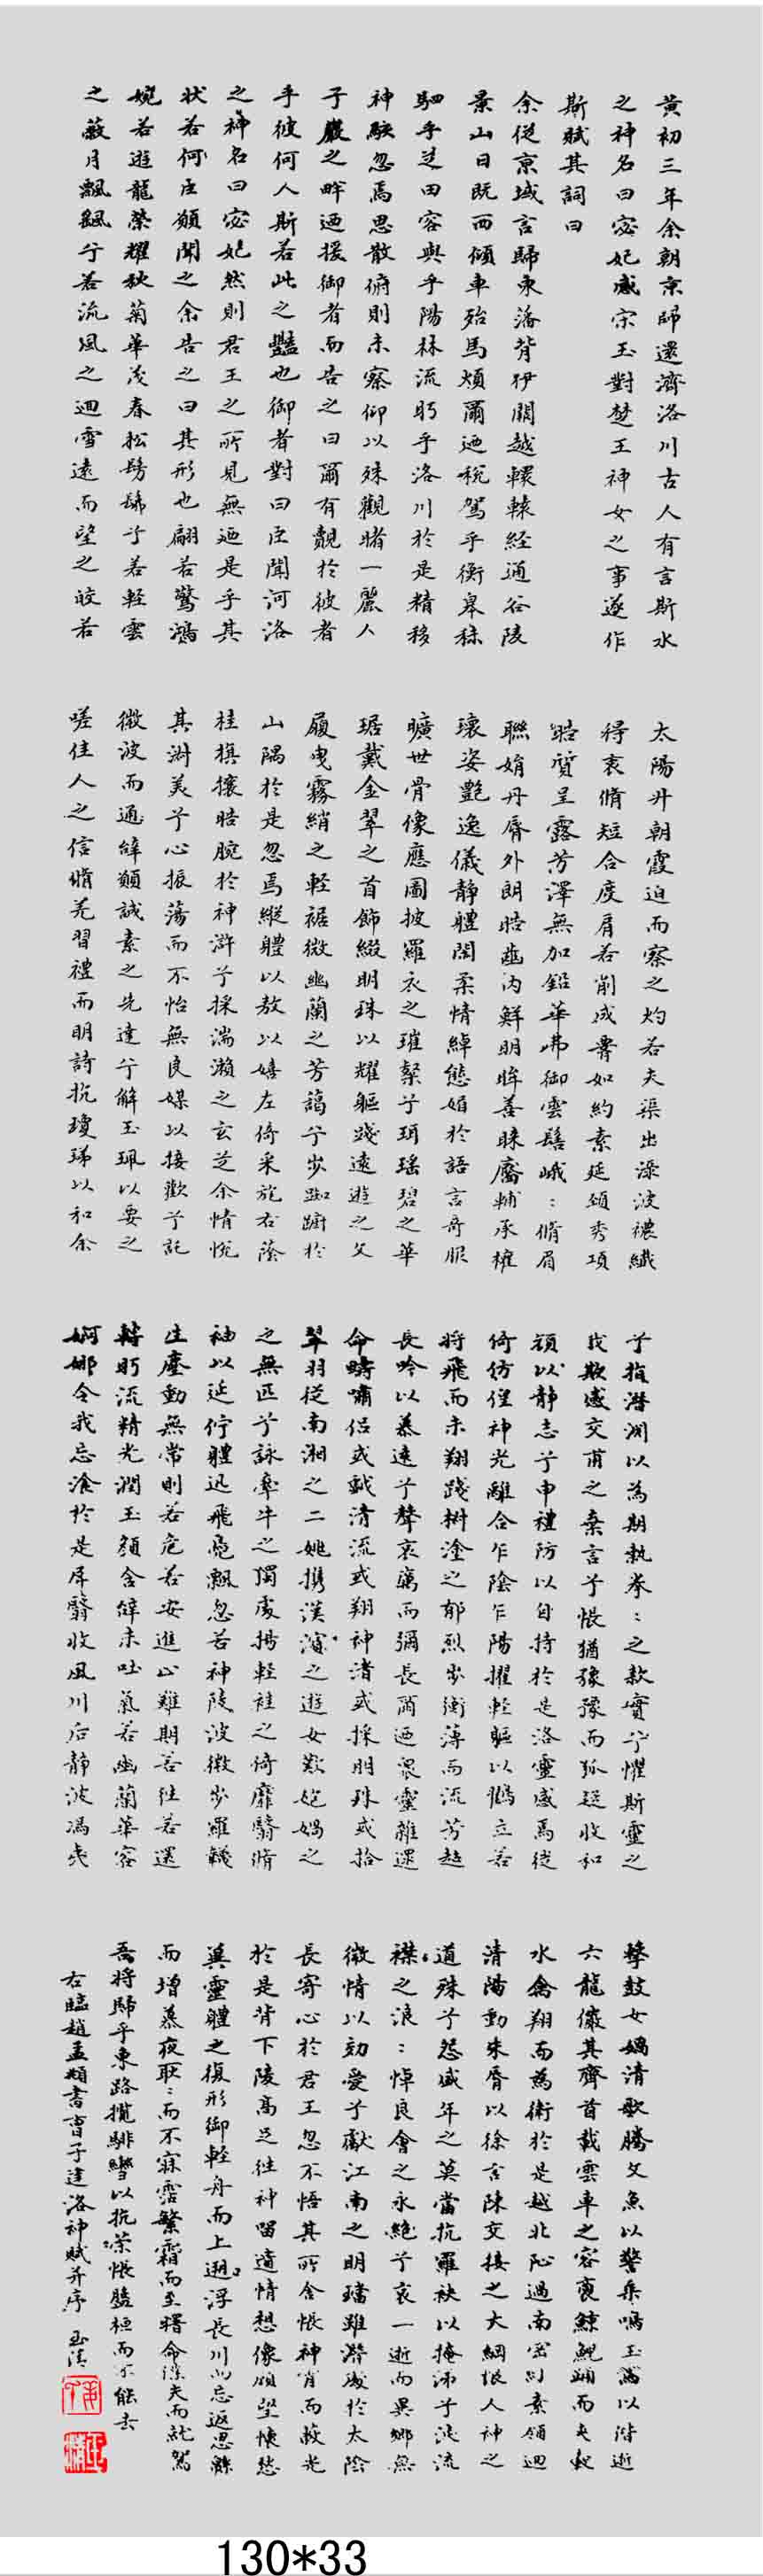 黄初三年余朝京師還濟洛川古人有言斯水
之神名曰宓妃感宋玉對楚王神女之事遂作
斯賦其詞曰
余從京域言歸東藩背伊闕越轘轅経通谷陵
景山日既西傾車殆馬煩爾迺税駕乎蘅皋秣
駟乎芝田容與乎陽林流眄乎洛川於是精移
神駭忽焉思散俯則未察仰以殊觀睹一麗人
于巖之畔迺援御者而告之曰爾有覿於彼者
乎彼何人斯若此之豔也御者對曰臣聞河洛
之神名曰宓妃然則君王之所見無迺是乎其
状若何臣願聞之余告之曰其形也翩若驚鴻
婉若遊龍榮耀秋菊華茂春松髣髴兮若軽雲
之蔽月飄飖兮若流風之迴雪遠而望之皎若
太陽升朝霞迫而察之灼若夫渠出渌波襛纖
得衷脩短合度肩若削成署如約素延頸秀項
皓質呈露芳澤無加鉛華弗御雲髻峨:脩眉
聯娟丹脣外朗皓齒内鮮明眸善睞靨輔承權
瓌姿艷逸儀静體閑柔情綽態媚於語言奇服
曠世骨像應圖披羅衣之璀粲兮珥瑶碧之華
琚戴金翠之首飾綴明珠以耀軀踐遠遊之文
履曳霧綃之軽裾微幽蘭之芳藹兮步踟蹰於
山隅於是忽焉縱體以敖以嬉左倚采旄右蔭
桂旗攘皓腕於神滸兮採湍瀨之玄芝余情悅
其淑美兮心振蕩而不怡無良媒以接歡兮託
微波而通辭願誠素之先達兮解玉珮以要之
嗟佳人之信脩羌習禮而明詩抗瓊珶以和余
兮指潜渊以為期執拳:之款實兮懼斯靈之
我欺感交甫之棄言兮悵猶豫而狐疑收和
顔以静志兮申禮防以自持於是洛靈感焉徙
倚彷徨神光離合乍陰乍陽擢軽軀以鶴立若
將飛而未翔踐椒塗之郁烈步衡薄而流芳超
長吟以慕遠兮聲哀厲而彌長爾迺眾靈雜遝
命疇嘯侶或戲清流或翔神渚或採明珠或拾
翠羽從南湘之二姚攜漢濵之遊女歎匏媧之
之無匹兮詠牽牛之獨處揚軽袿之倚靡翳脩
袖以延佇體迅飛鳧飄忽若神陵波微步羅韈
生塵動無常則若危若安進止難期若往若還
轉眄流精光潤玉顔含辭未吐氣若幽蘭華容
婀娜令我忘飡於是屏翳收風川后静波馮夷
擊鼓女媧清歌騰文魚以警乘鳴玉鸞以偕逝
六龍儼其齊首載雲車之容裔鯨鯢踊而夾轂
水禽翔而為衛於是越北沚過南岡紆素領迴
清陽動朱脣以徐言陳交接之大綱恨人神之
道殊兮怨盛年之莫當抗羅袂以掩涕兮淚流
襟之浪:悼良會之永絶兮哀一逝而異鄉無
微情以効愛兮獻江南之明璫雖潜處於太陰
長寄心於君王忽不悟其所舍悵神宵而蔽光
於是背下陵高足往神留遺情想像顧望懷愁
冀靈體之復形御軽舟而上遡浮長川而忘返思緜
而增慕夜耿:而不寐霑繁霜而至曙命僕夫而就駕
吾將歸乎東路攬騑轡以抗策悵盤桓而不能去
右臨趙孟頫書曹子建洛神賦并序 玉清
130*33